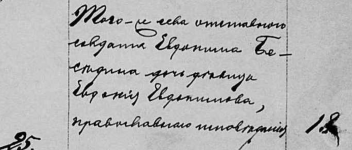 Того-же села отставного
солдата Евдокима Бе-
седина дочь девица
Евгения Евдокимова,
православнаго исповедания
18
25.